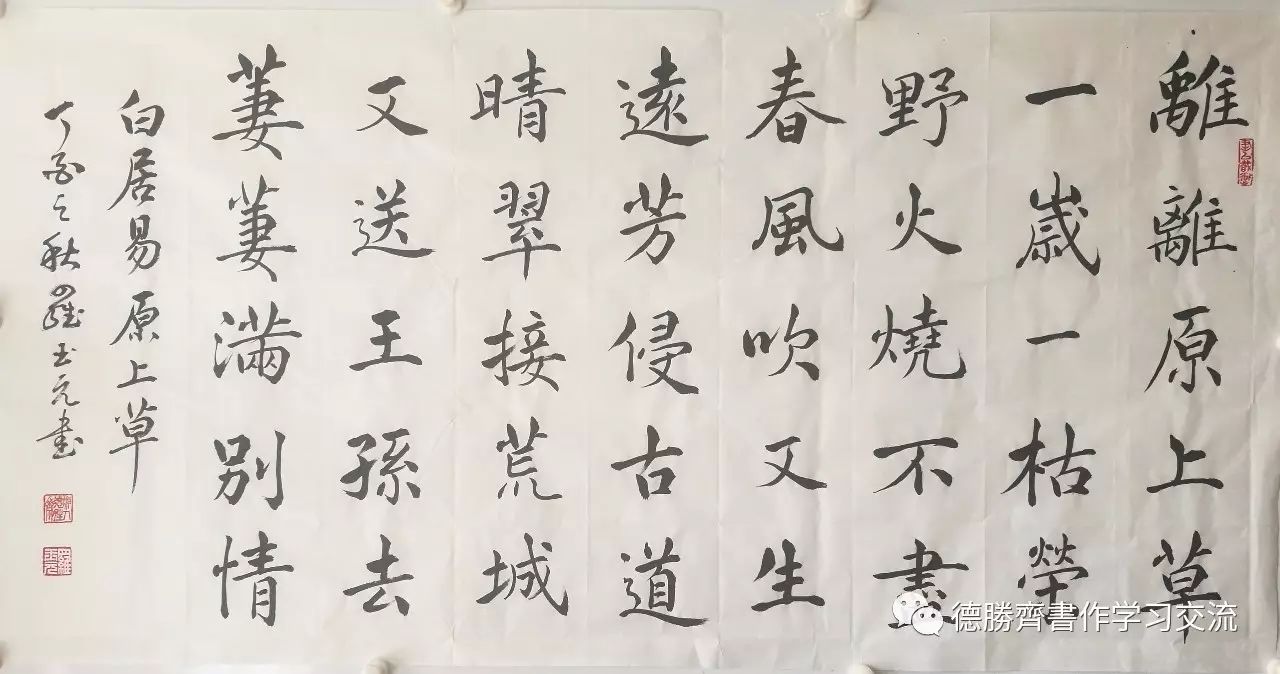 離離原上草
一歲一枯榮
野火燒不盡
春風吹又生
遠芳侵古道
晴翠接荒城
又送王孫去
萋萋滿別情
白居易原上草
丁酉之秋羅玉元書
德勝齊書作学习交流